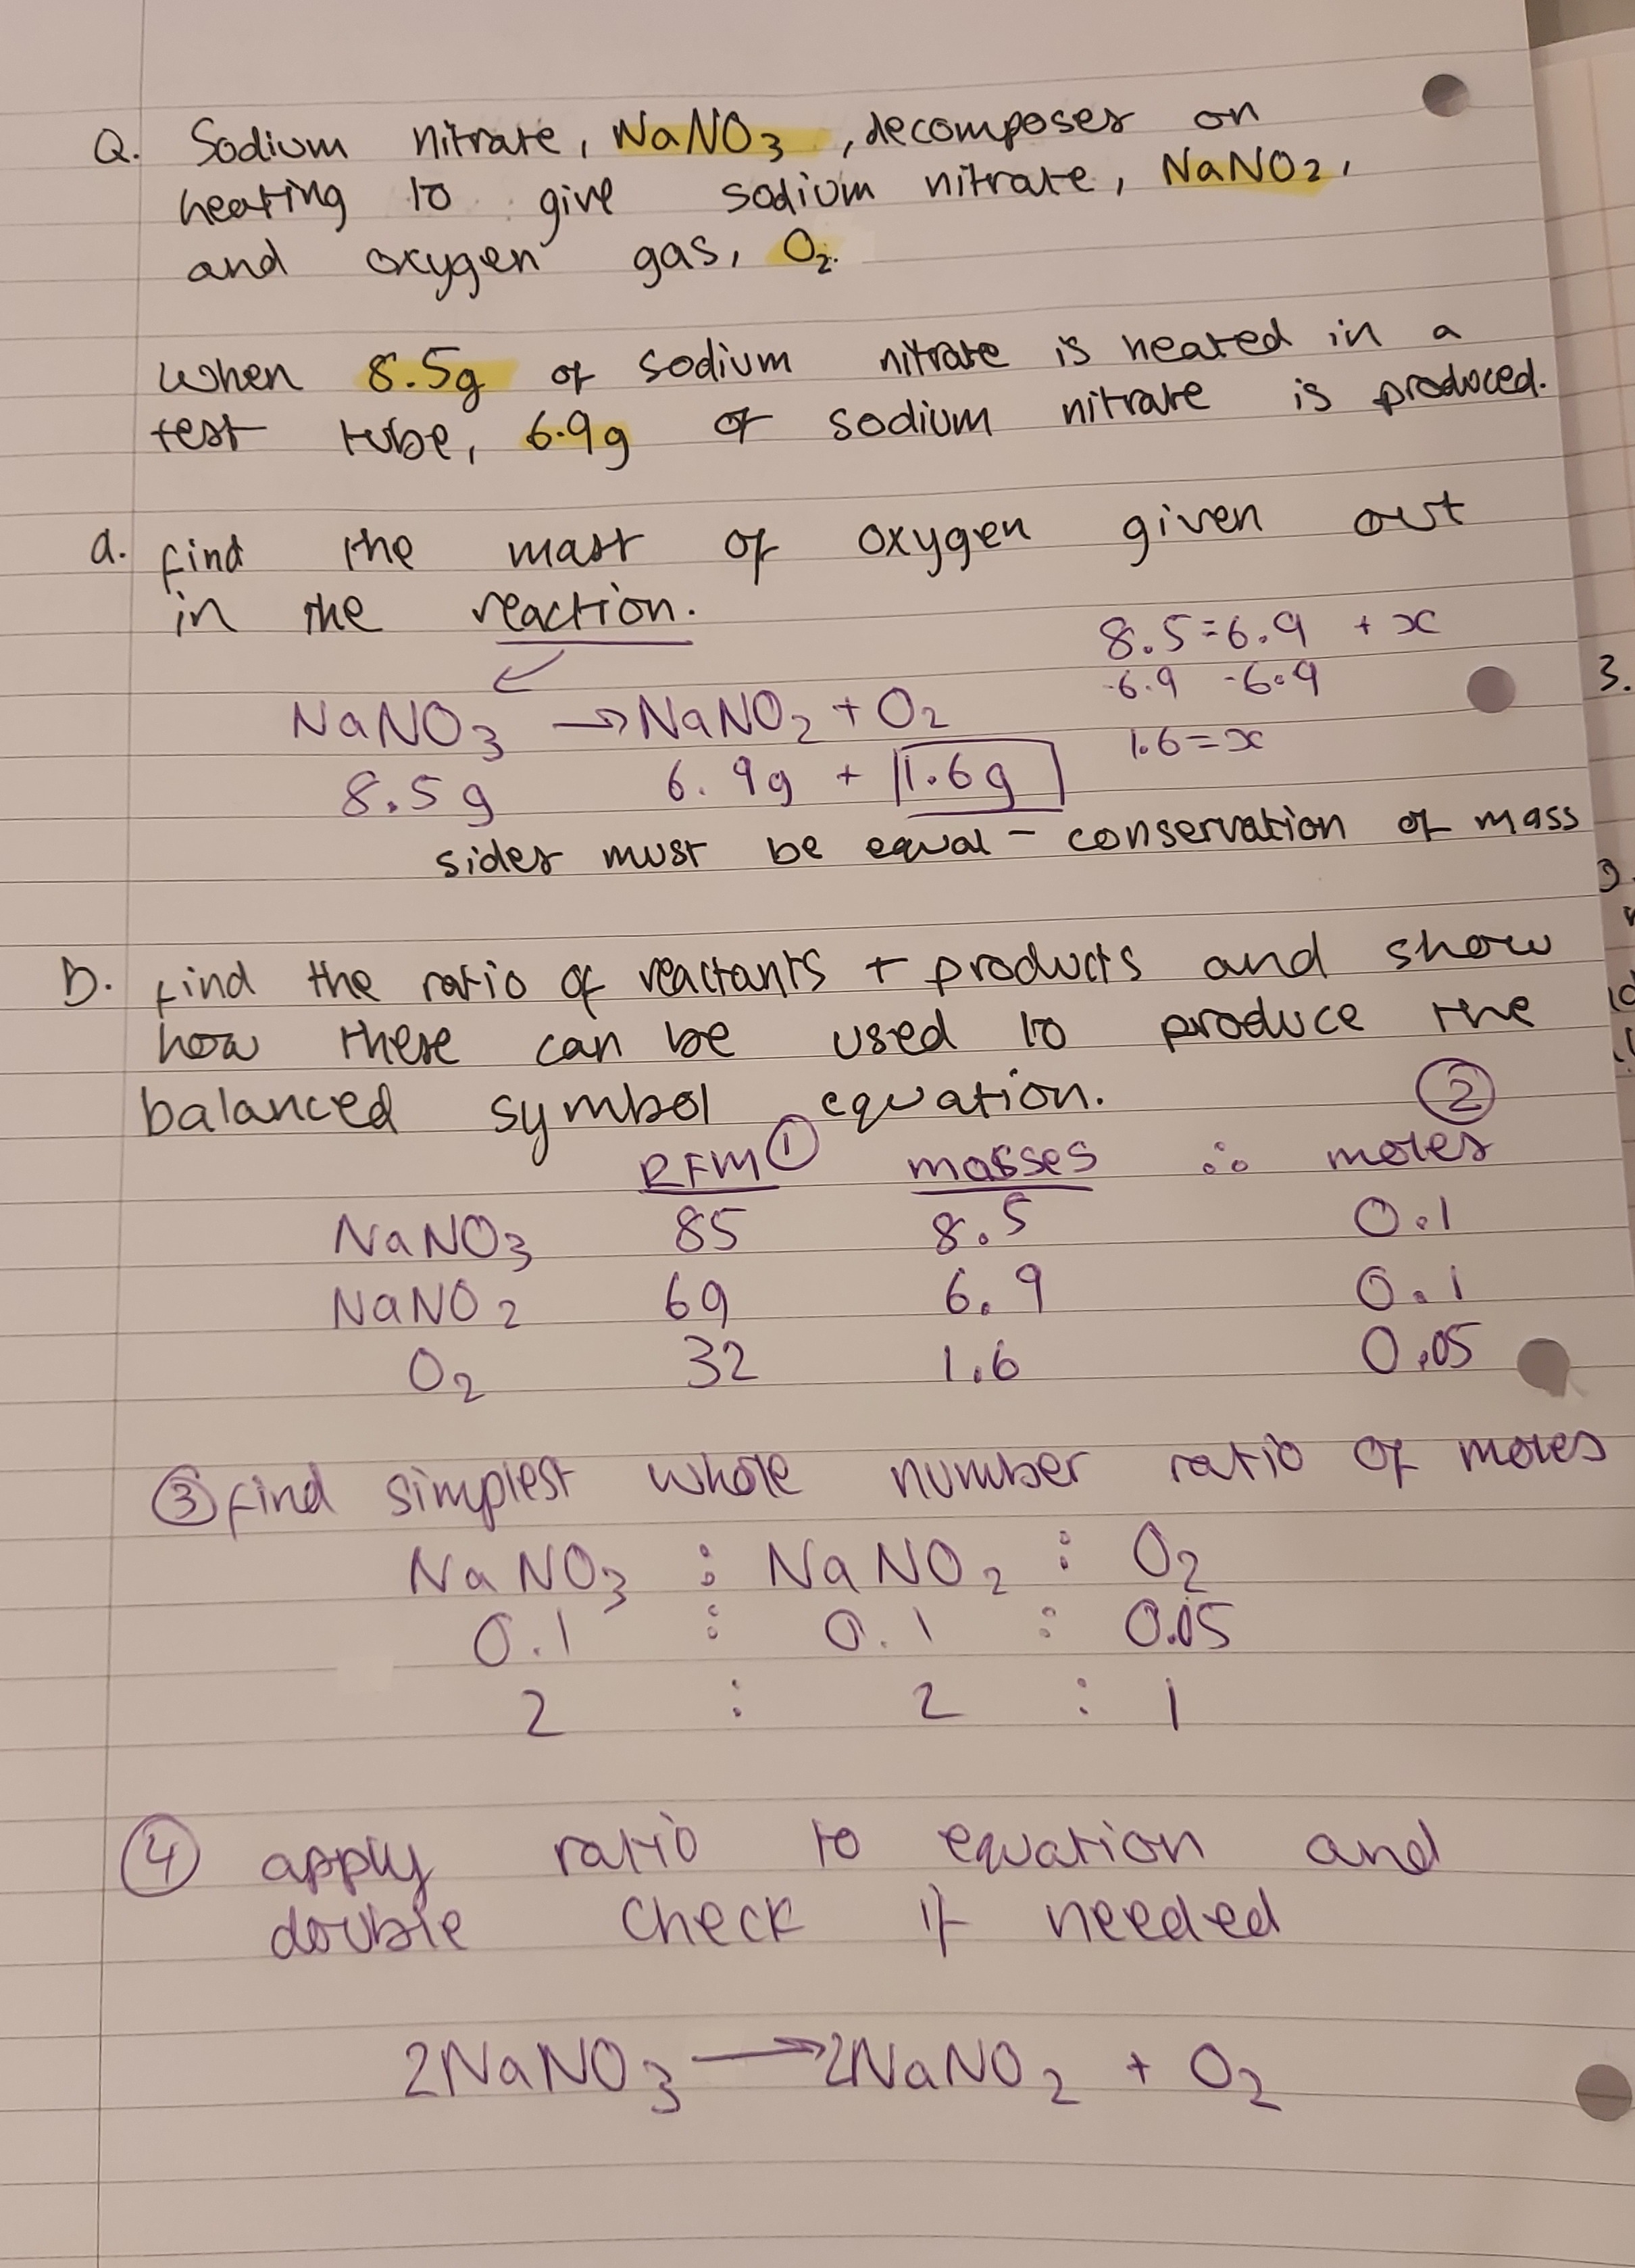 Q. Sodium nitrate, NaNO3, decomposes on
heating to give sodium nitrate, NaNO2,
and oxygen gas, O2.
When 8.5g of sodium nitrate is heated in a
test tube, 6.9g of sodium nitrate is produced.
a. find the mass of oxygen given out
in the reaction.
8.5=6.9 + x
-6.9 -6.9
1.6=x
NaNO3 → NaNO2 + O2
8.5g 6.9g + 1.6g
sides must be equal - conservation of mass
b. find the ratio of reactants + products and show
how these can be used to produce the
balanced symbol equation.
RFM ① masses ∴ moles ②
NaNO3 85 8.5 0.1
NaNO2 69 6.9 0.1
O2 32 1.6 0.05
③ find simplest whole number ratio of moles
NaNO3 : NaNO2 : O2
0.1 : 0.1 : 0.05
2 : 2 : 1
④ apply ratio to equation and
double check if needed
2NaNO3 → 2NaNO2 + O2
3.